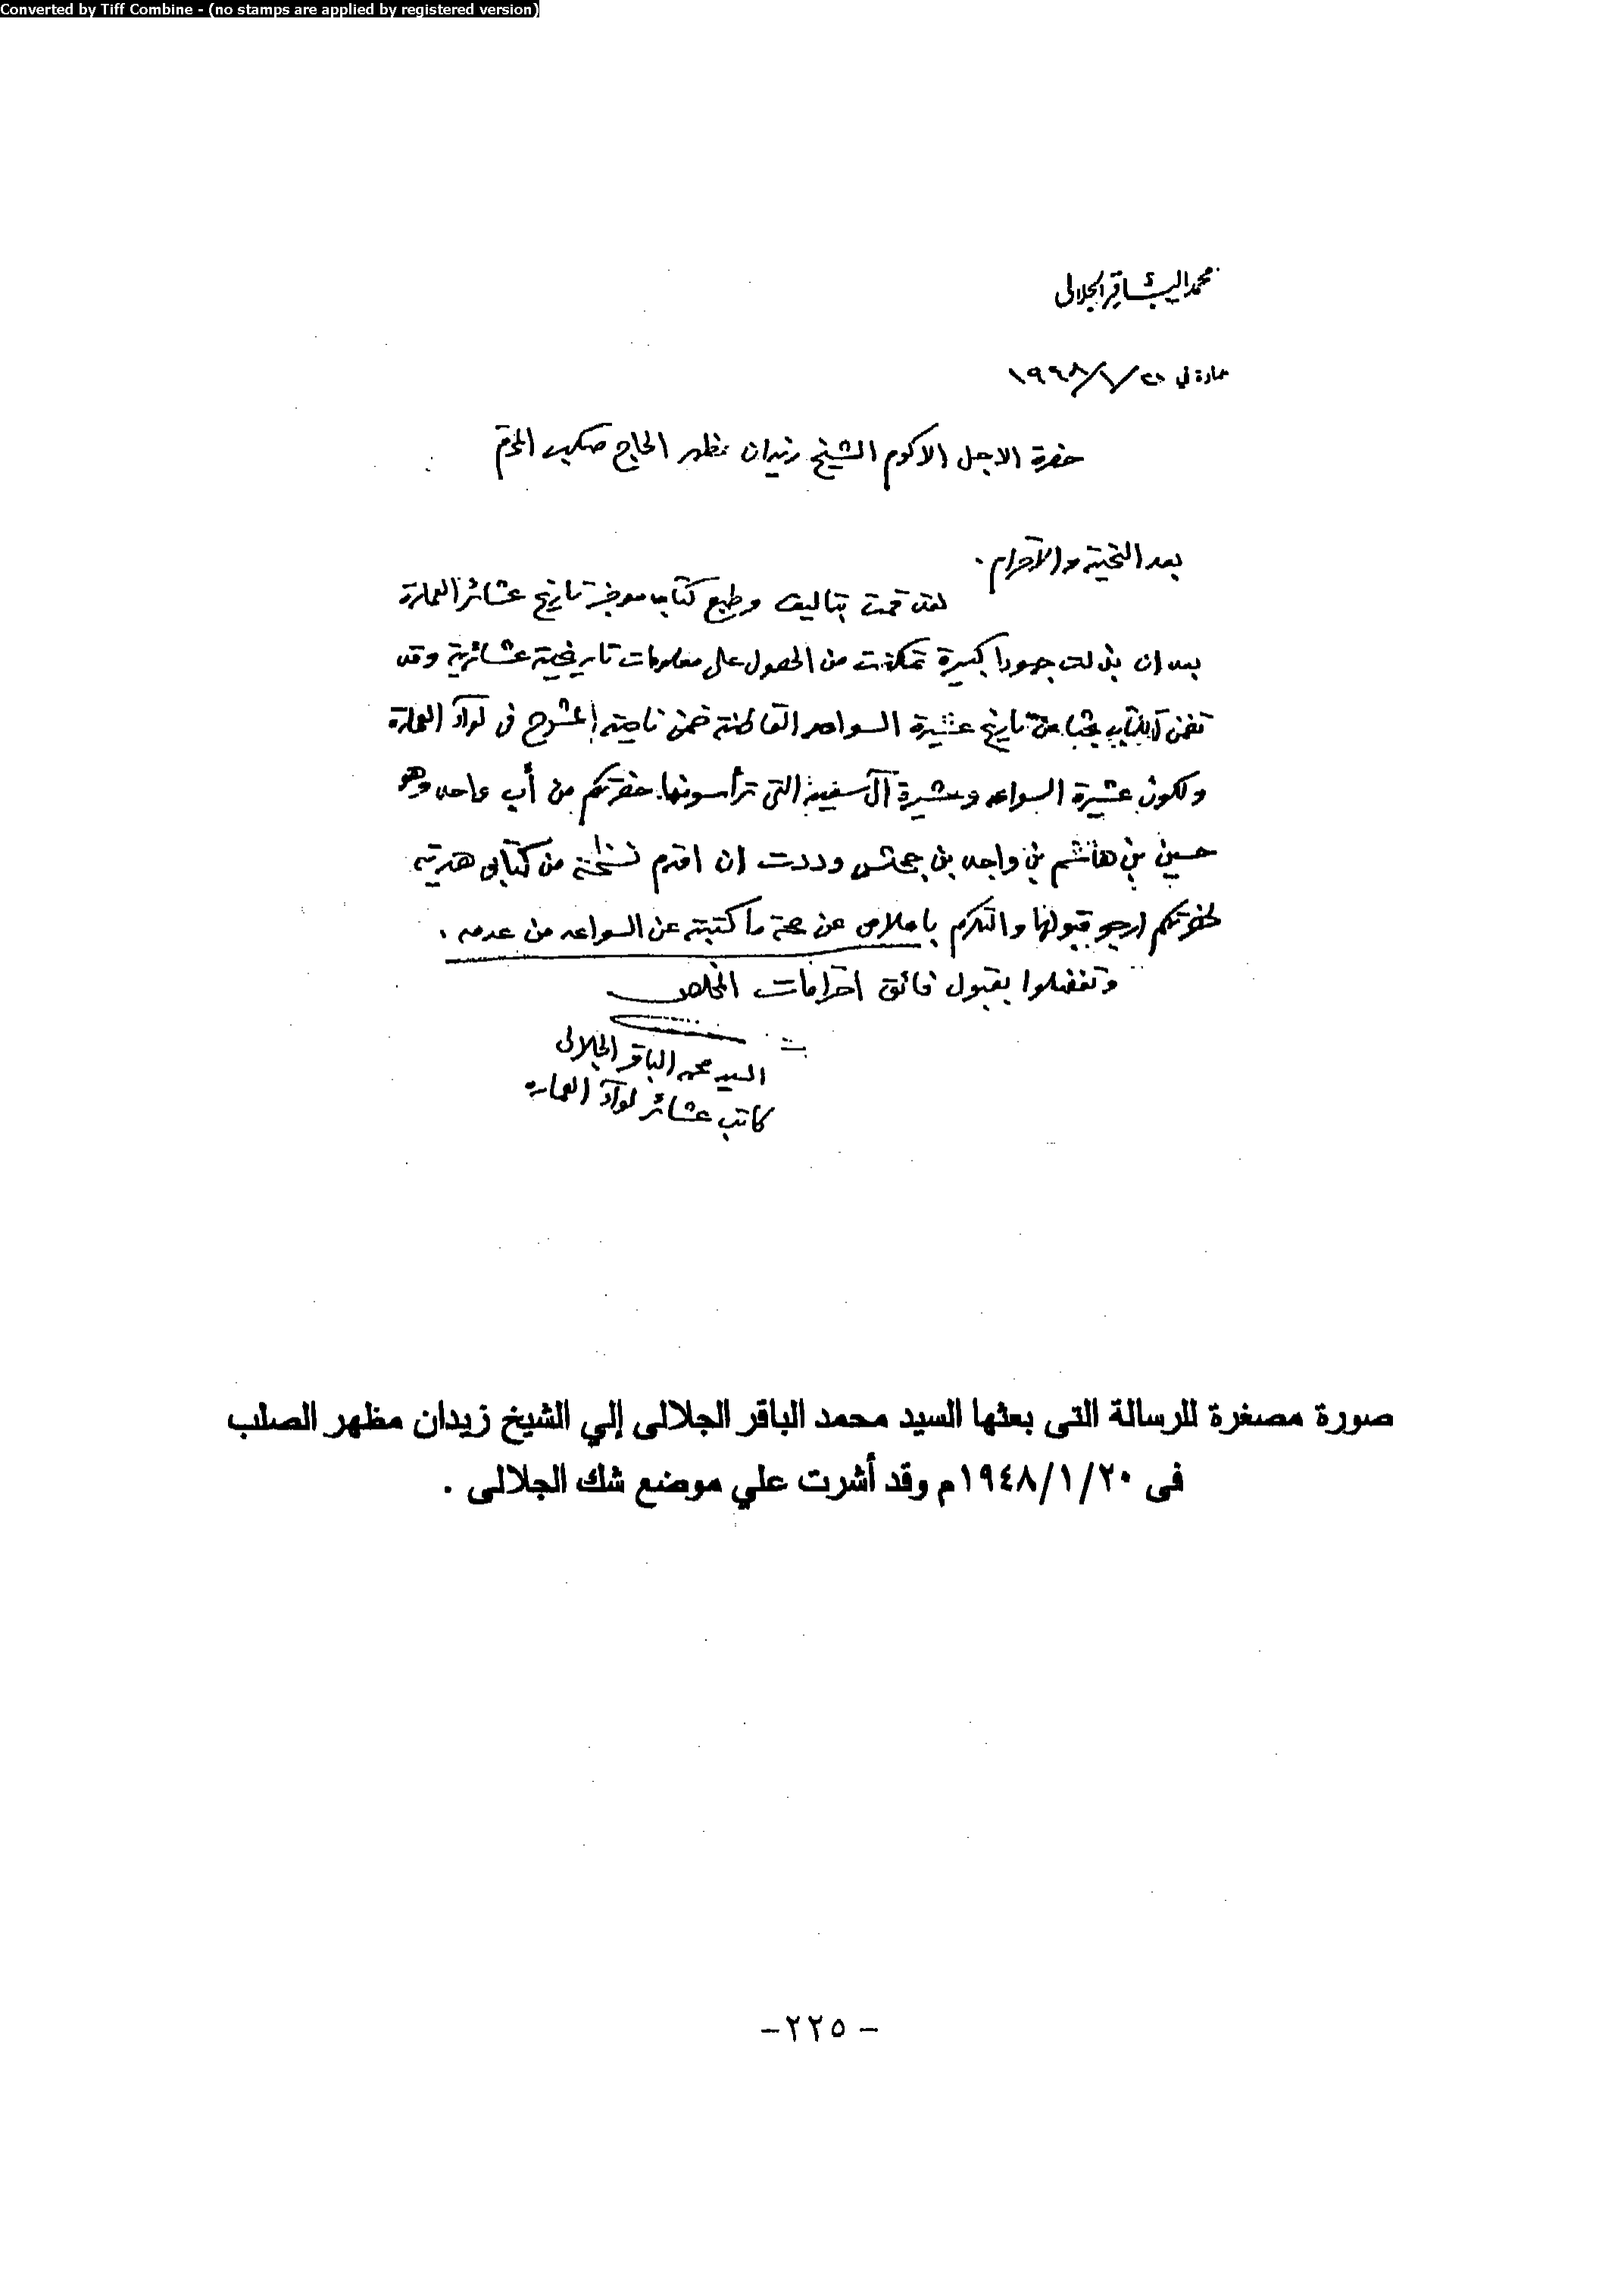 Converted by Tiff Combine - (no stamps are applied by registered version)
محمد الباقر الجلالى
عمارة في ٢٠/١/١٩٤٨
حضرة الاجل الاكرم الشيخ زيدان مظهر الحاج المحترم
بعد التحية والاحترام .
لقد قمت بتاليف وطبع كتاب موجز تاريخ عشائر العمارة
بعد ان بذلت جهودا كبيرة تمكنت من الحصول على معلومات تاريخية عشائرية وقد
تضمن الكتاب بحثا عن تاريخ عشيرة السواعد القاطنة ضمن ناحية المشرح في لوآء العمارة
ولكون عشيرة السواعد وعشيرة آل التي ترأسونها حضرتكم من أب واحد وهو
حسين بن هاشم بن واجد بن وددت ان اقدم نسخة من كتابى هدية
لحضرتكم ارجو قبولها والتكرم باعلامى عن صحة ما كتبته عن السواعد من عدمه .
وتفضلوا بقبول فائق احترامات المخلص
السيد محمد الباقر الجلالى
كاتب عشائر لوآء العمارة
صورة مصغرة للرسالة التى بعثها السيد محمد الباقر الجلالى إلي الشيخ زيدان مظهر الصلب
فى ٢٠/١/١٩٤٨م وقد أشرت علي موضع شك الجلالى .
- ٢٢٥-